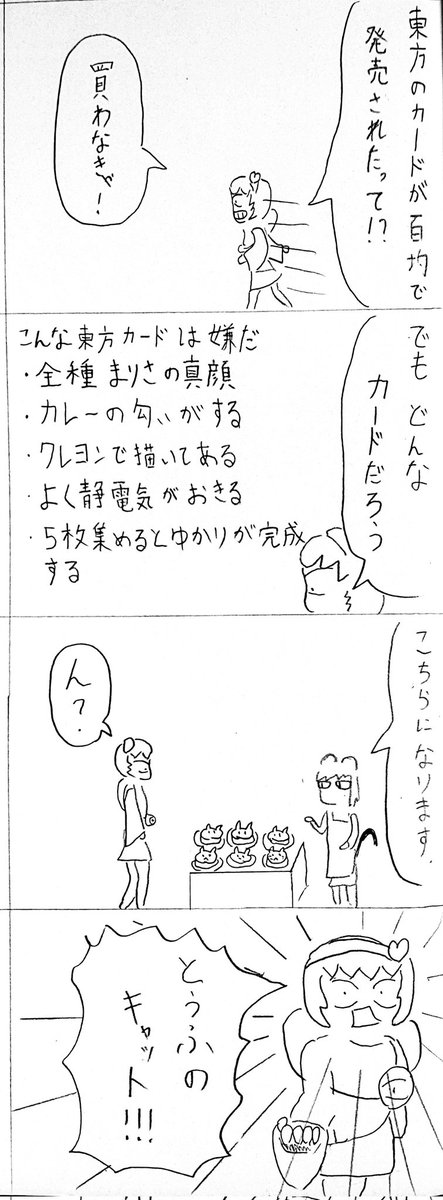 東方のカードが百均で
発売されたって!?
買わなきゃ!
でもどんな
カードだろう
こんな東方カードは嫌だ
・全種まりさの真顔
・カレーの匂いがする
・クレヨンで描いてある
・よく静電気がおきる
・5枚集めるとゆかりが完成
する
こちらになります。
ん?
とうふの
キャット!!!